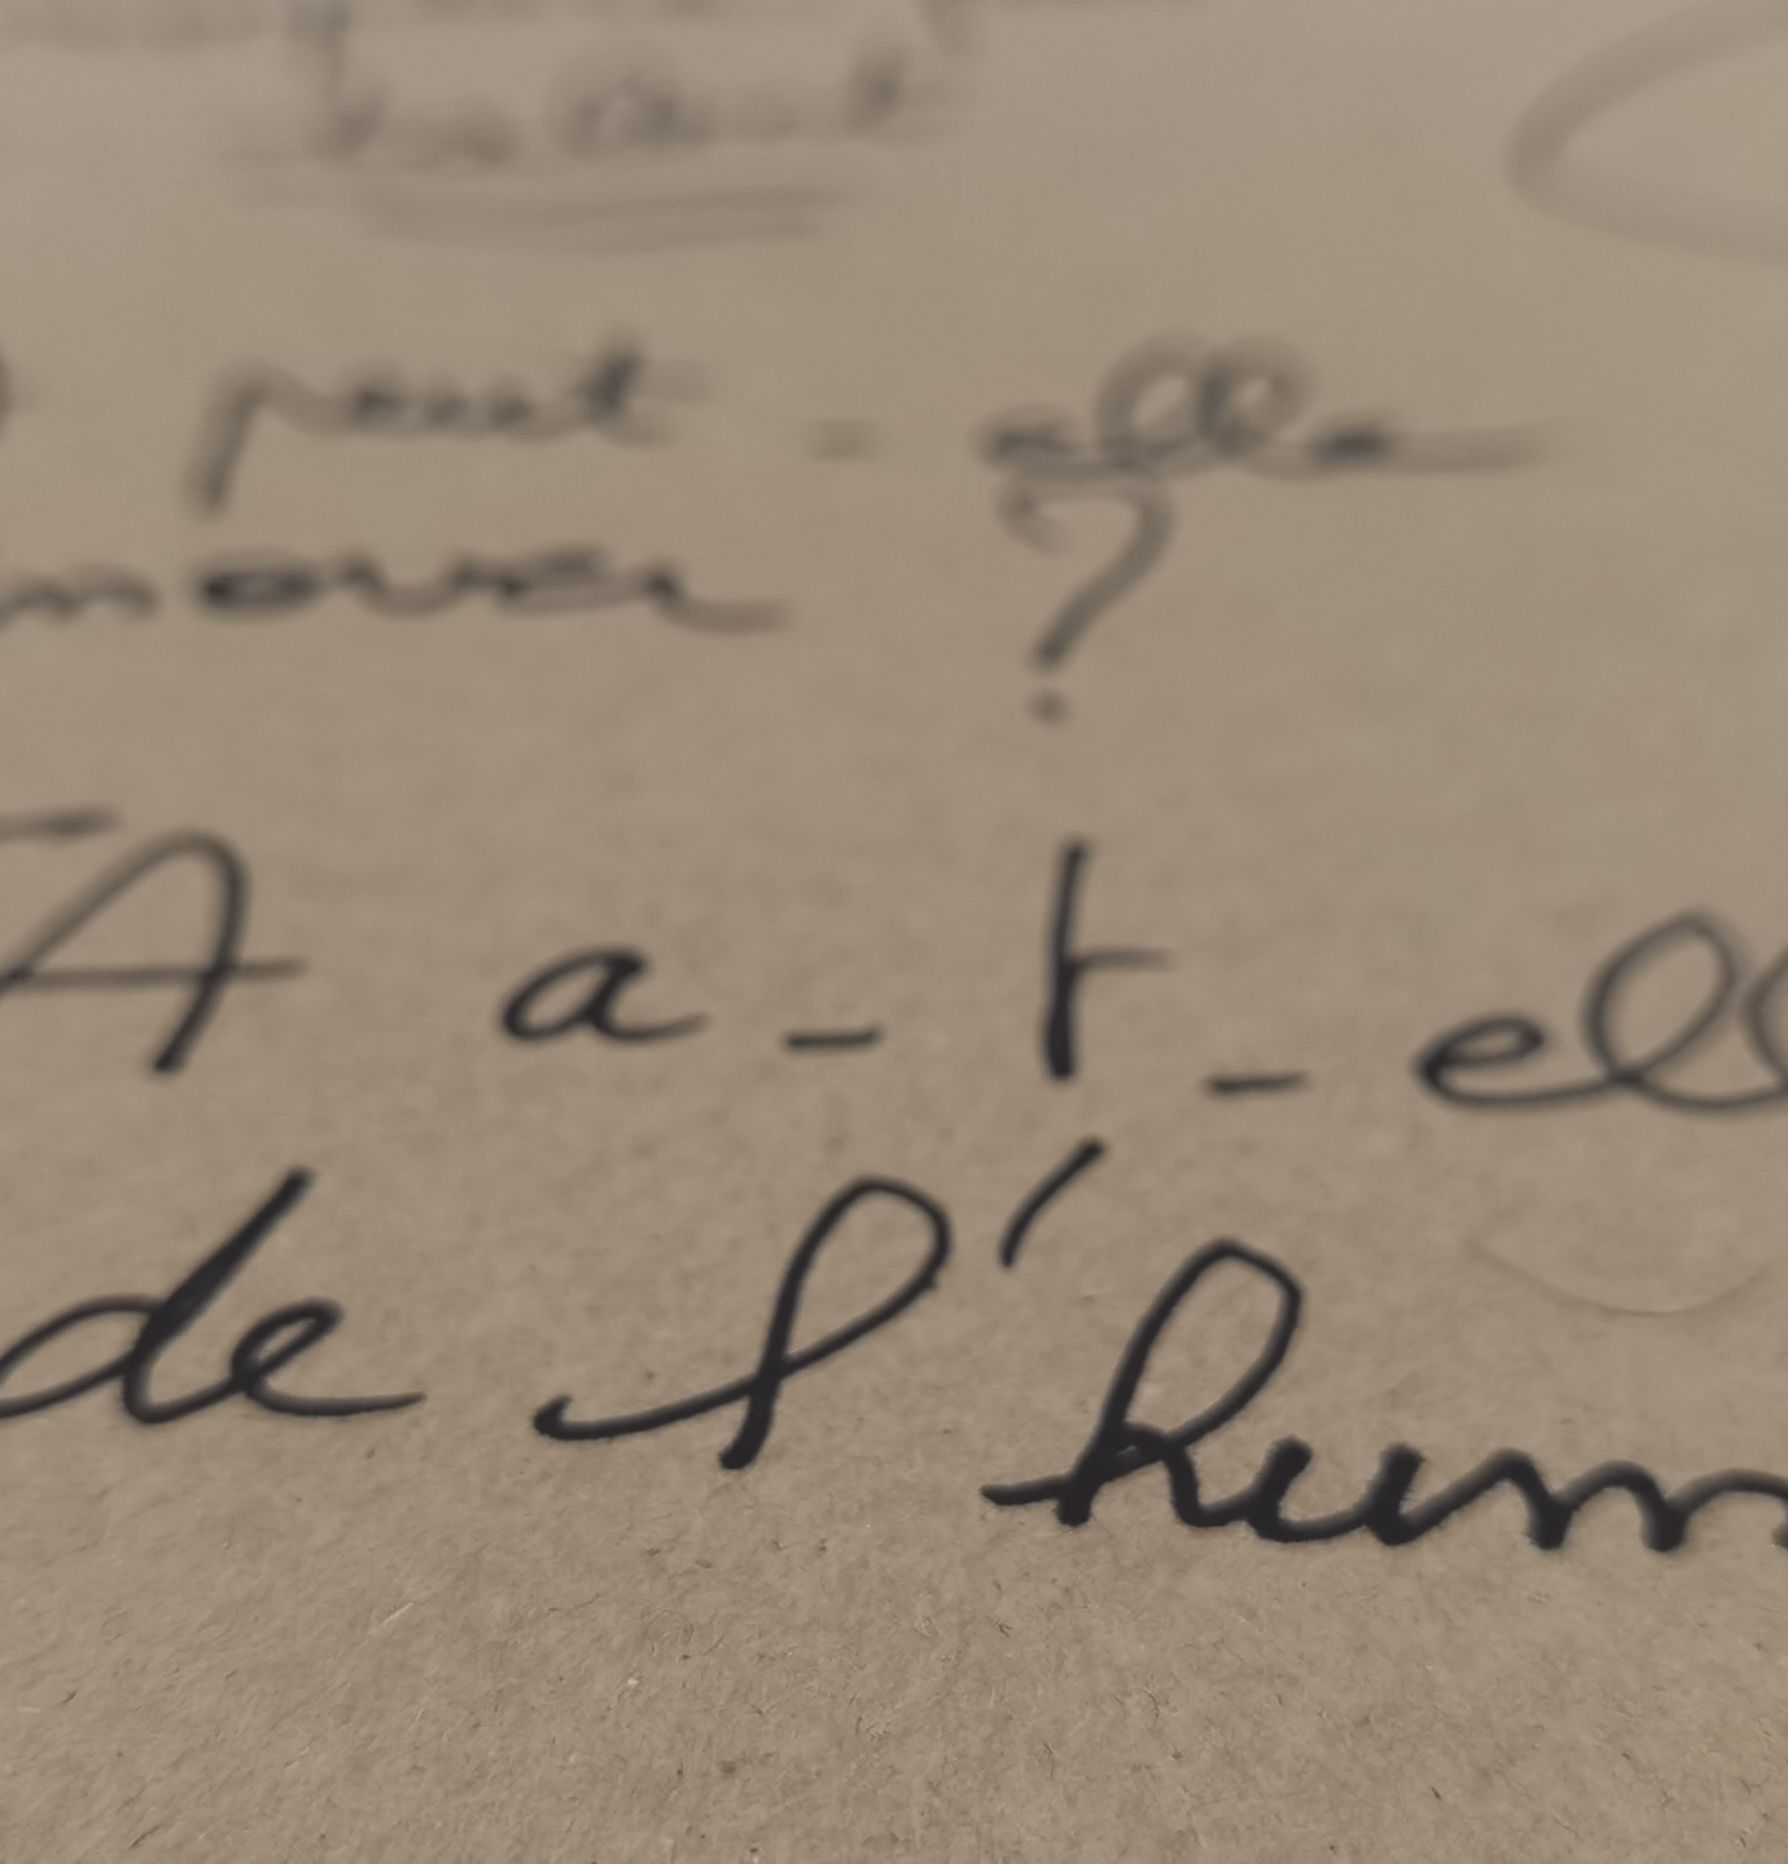 peut - elle
mouver ?
A a - t - ell
de l'hum